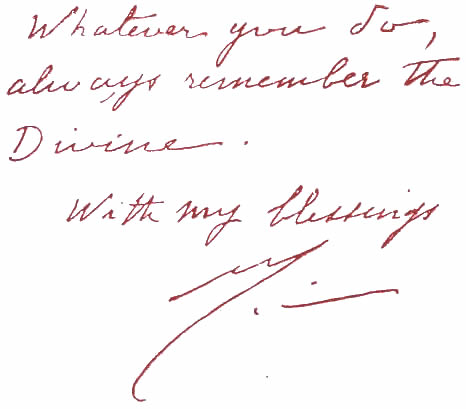 Whatever you do,
always remember the
Divine.
With my blessings